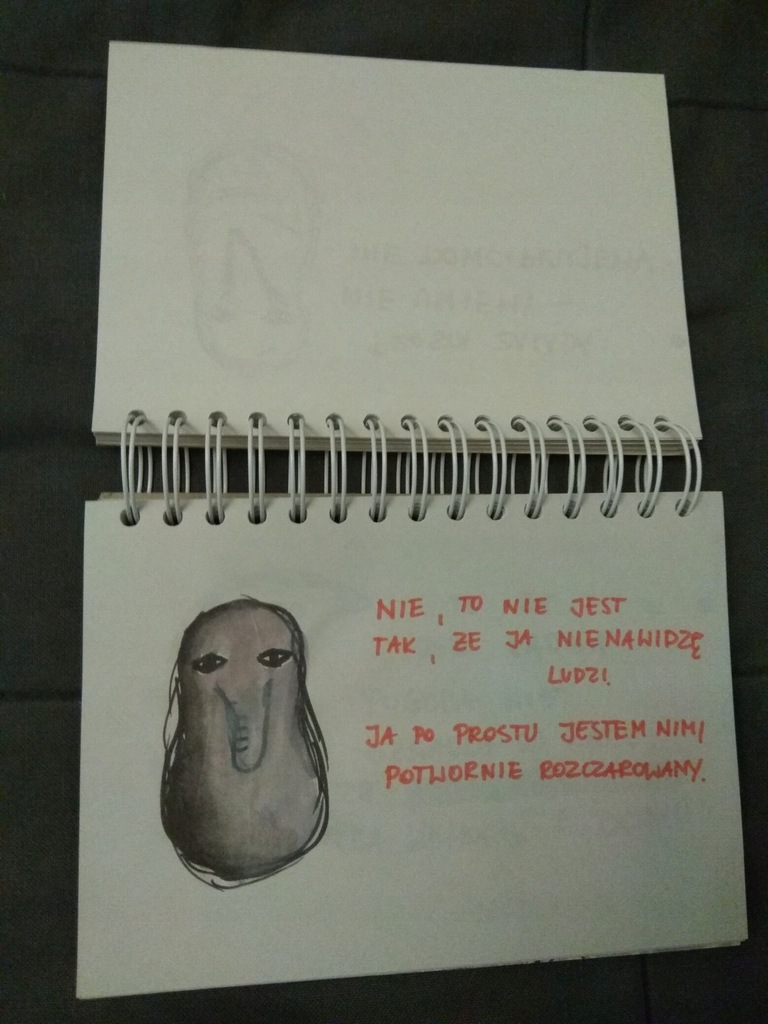 NIE, TO NIE JEST
TAK, ŻE JA NIENAWIDZĘ
LUDZI.
JA PO PROSTU JESTEM NIMI
POTWORNIE ROZCZAROWANY.